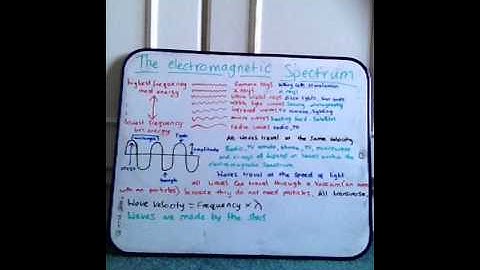 The electromagnetic Spectrum
highest frequency
most energy
lowest frequency
low energy
Gamma rays killing cells, sterilisation
x rays x rays
ultra violet rays
visible light waves seeing, photography
infrared waves TV remote,
micro waves heating food, satellites
radio waves radio, TV
wavelength
Peak
amplitude
trough
All waves travel at the same velocity
Radio, TV remote, phones, TV, microwaves
and x-rays all depend on waves within the
electromagnetic Spectrum.
Waves travel at the speed of light
All waves can travel through a vacuum (an area
with no particles) because they do not need particles. All transverse.
Wave Velocity = Frequency × λ
Waves are made by the stars